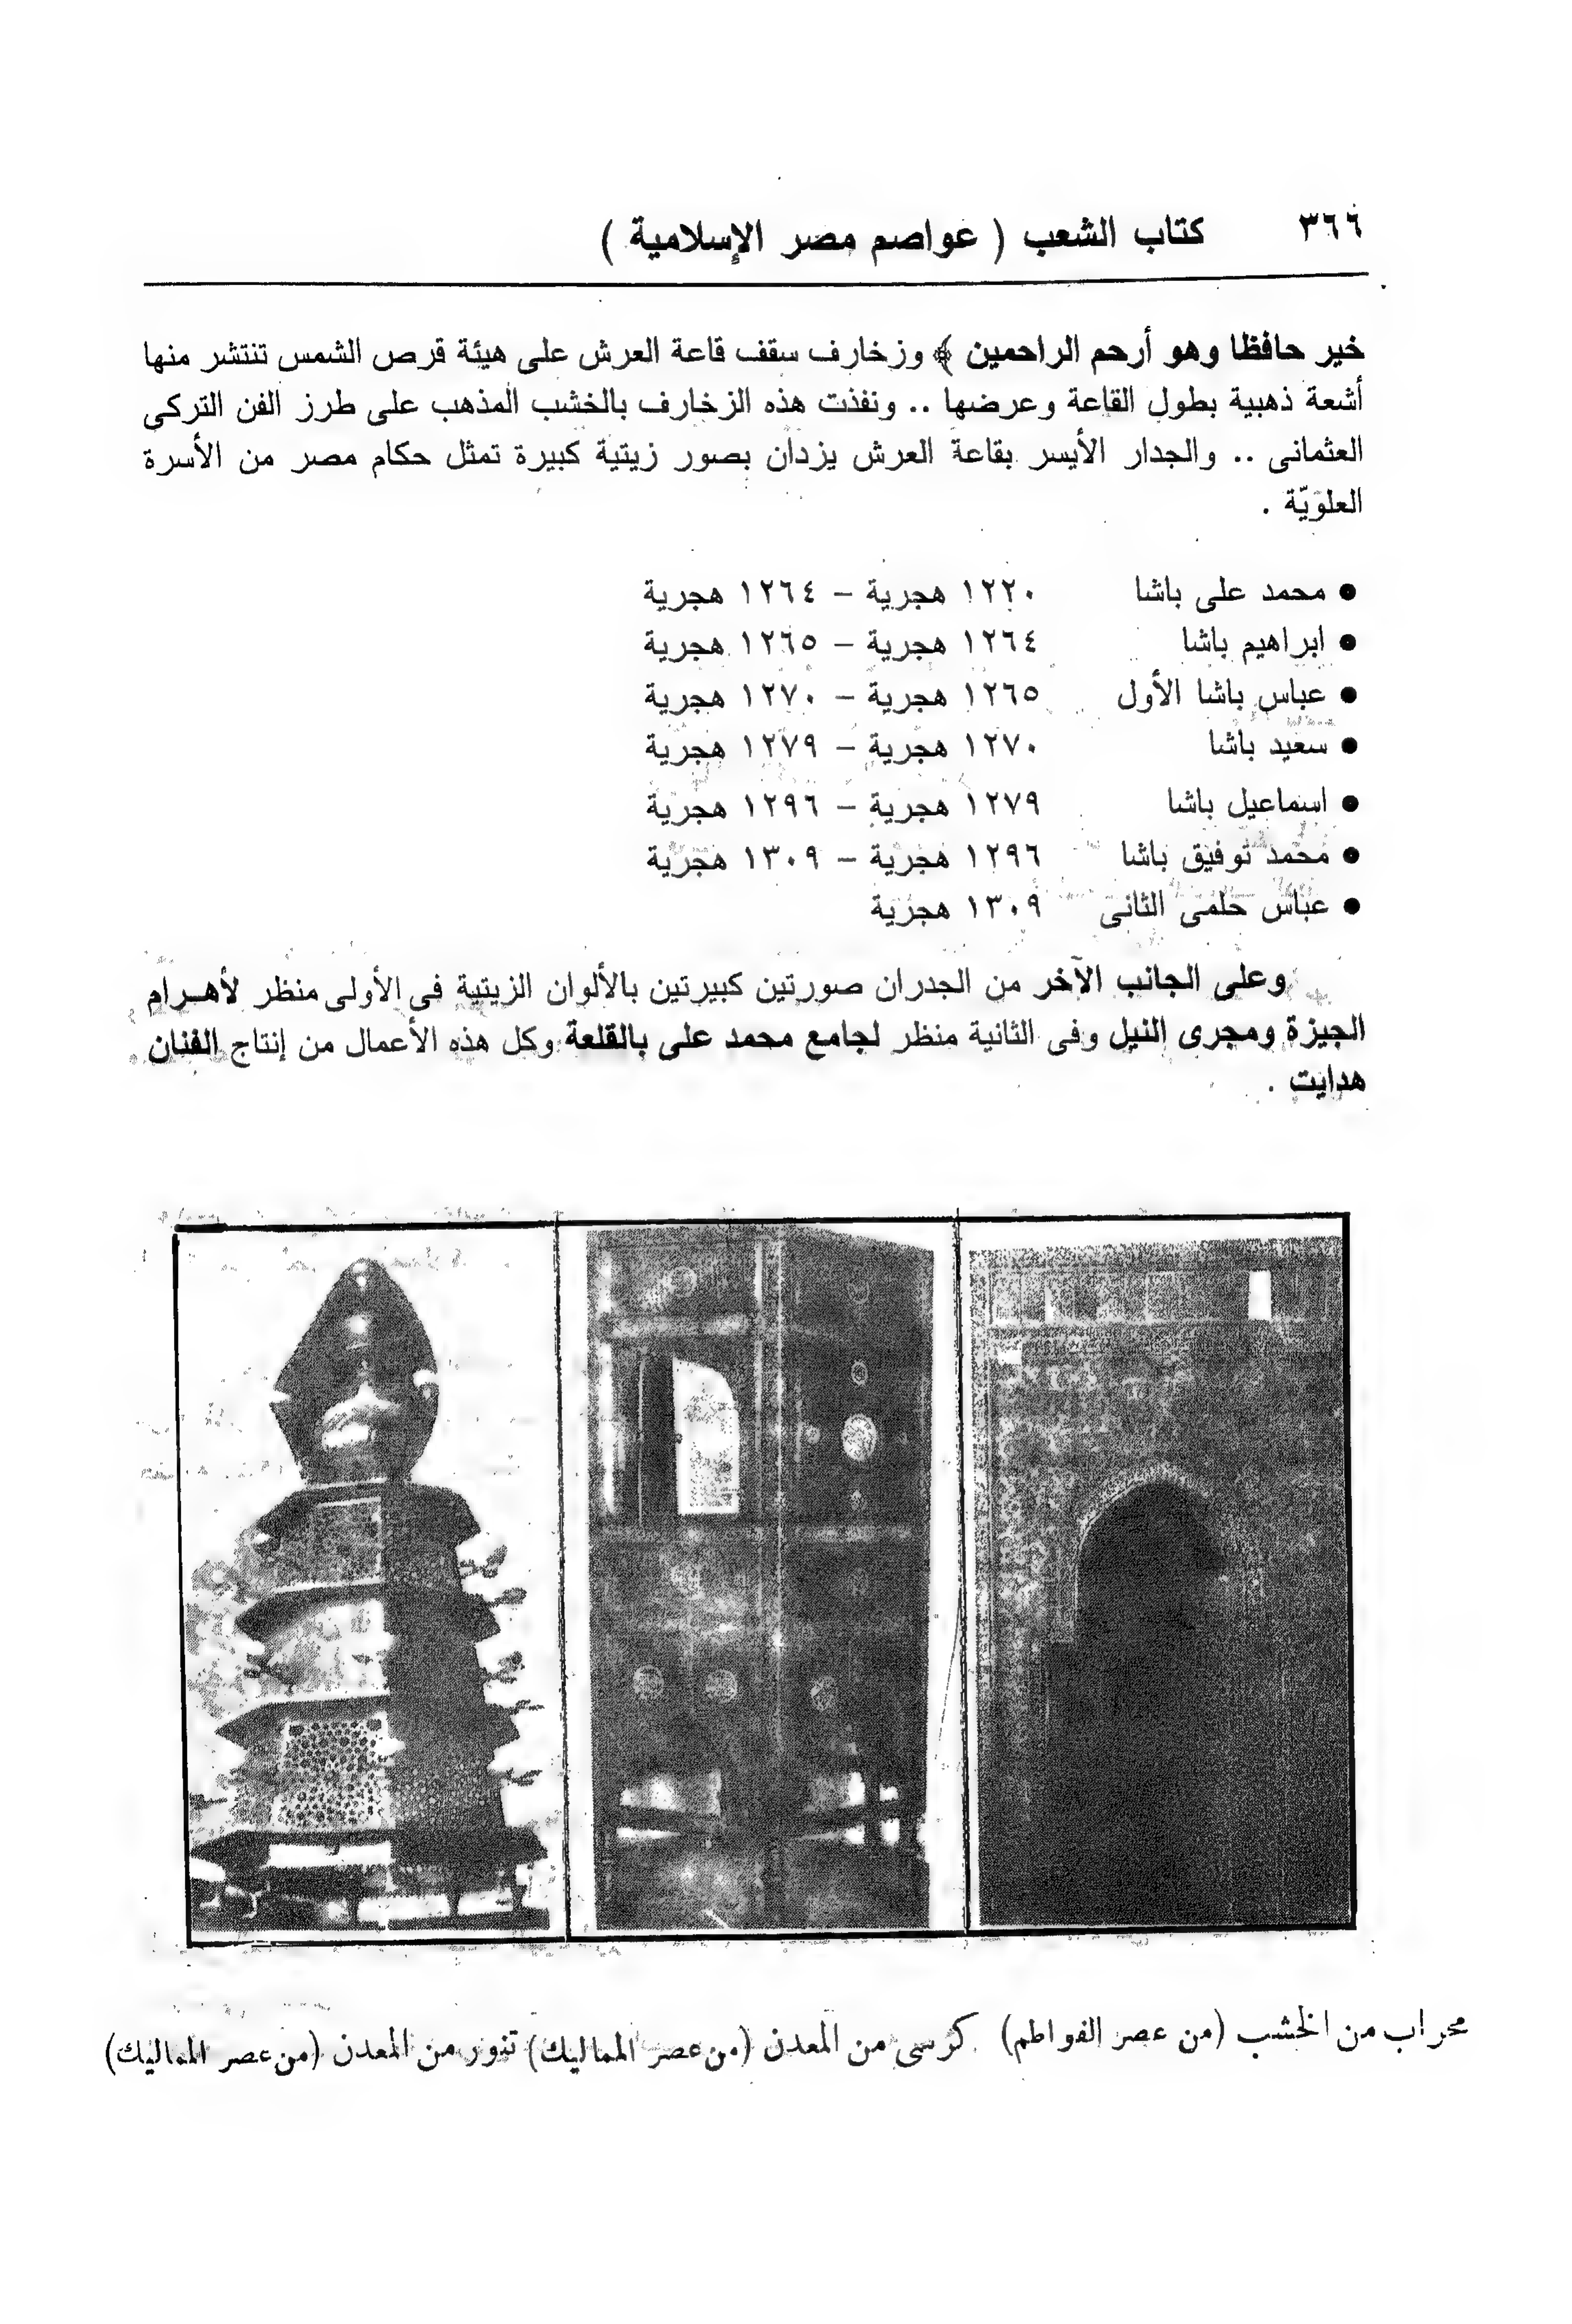 ٣٦٦ كتاب الشعب ( عواصم مصر الإسلامية )
خير حافظا وهو أرحم الراحمين ﴾ وزخارف سقف قاعة العرش على هيئة قرص الشمس تنتشر منها
أشعة ذهبية بطول القاعة وعرضها .. ونفذت هذه الزخارف بالخشب المذهب على طرز الفن التركى
العثمانى .. والجدار الأيسر بقاعة العرش يزدان بصور زيتية كبيرة تمثل حكام مصر من الأسرة
العلويّة .
● محمد على باشا ١٢٢٠ هجرية – ١٢٦٤ هجرية
● ابراهيم باشا ١٢٦٤ هجرية – ١٢٦٥ هجرية
● عباس باشا الأول ١٢٦٥ هجرية – ١٢٧٠ هجرية
● سعيد باشا ١٢٧٠ هجرية – ١٢٧٩ هجرية
● اسماعيل باشا ١٢٧٩ هجرية – ١٢٩٦ هجرية
● محمد توفيق باشا ١٢٩٦ هجرية – ١٣٠٩ هجرية
● عباس حلمى الثانى ١٣٠٩ هجرية
وعلى الجانب الآخر من الجدران صورتين كبيرتين بالألوان الزيتية فى الأولى منظر لأهرام
الجيزة ومجرى النيل وفى الثانية منظر لجامع محمد على بالقلعة وكل هذه الأعمال من إنتاج الفنان
هدايت .
محراب من الخشب (من عصر الفواطم) كرسى من المعدن (من عصر المماليك) تنور من المعدن (من عصر المماليك)